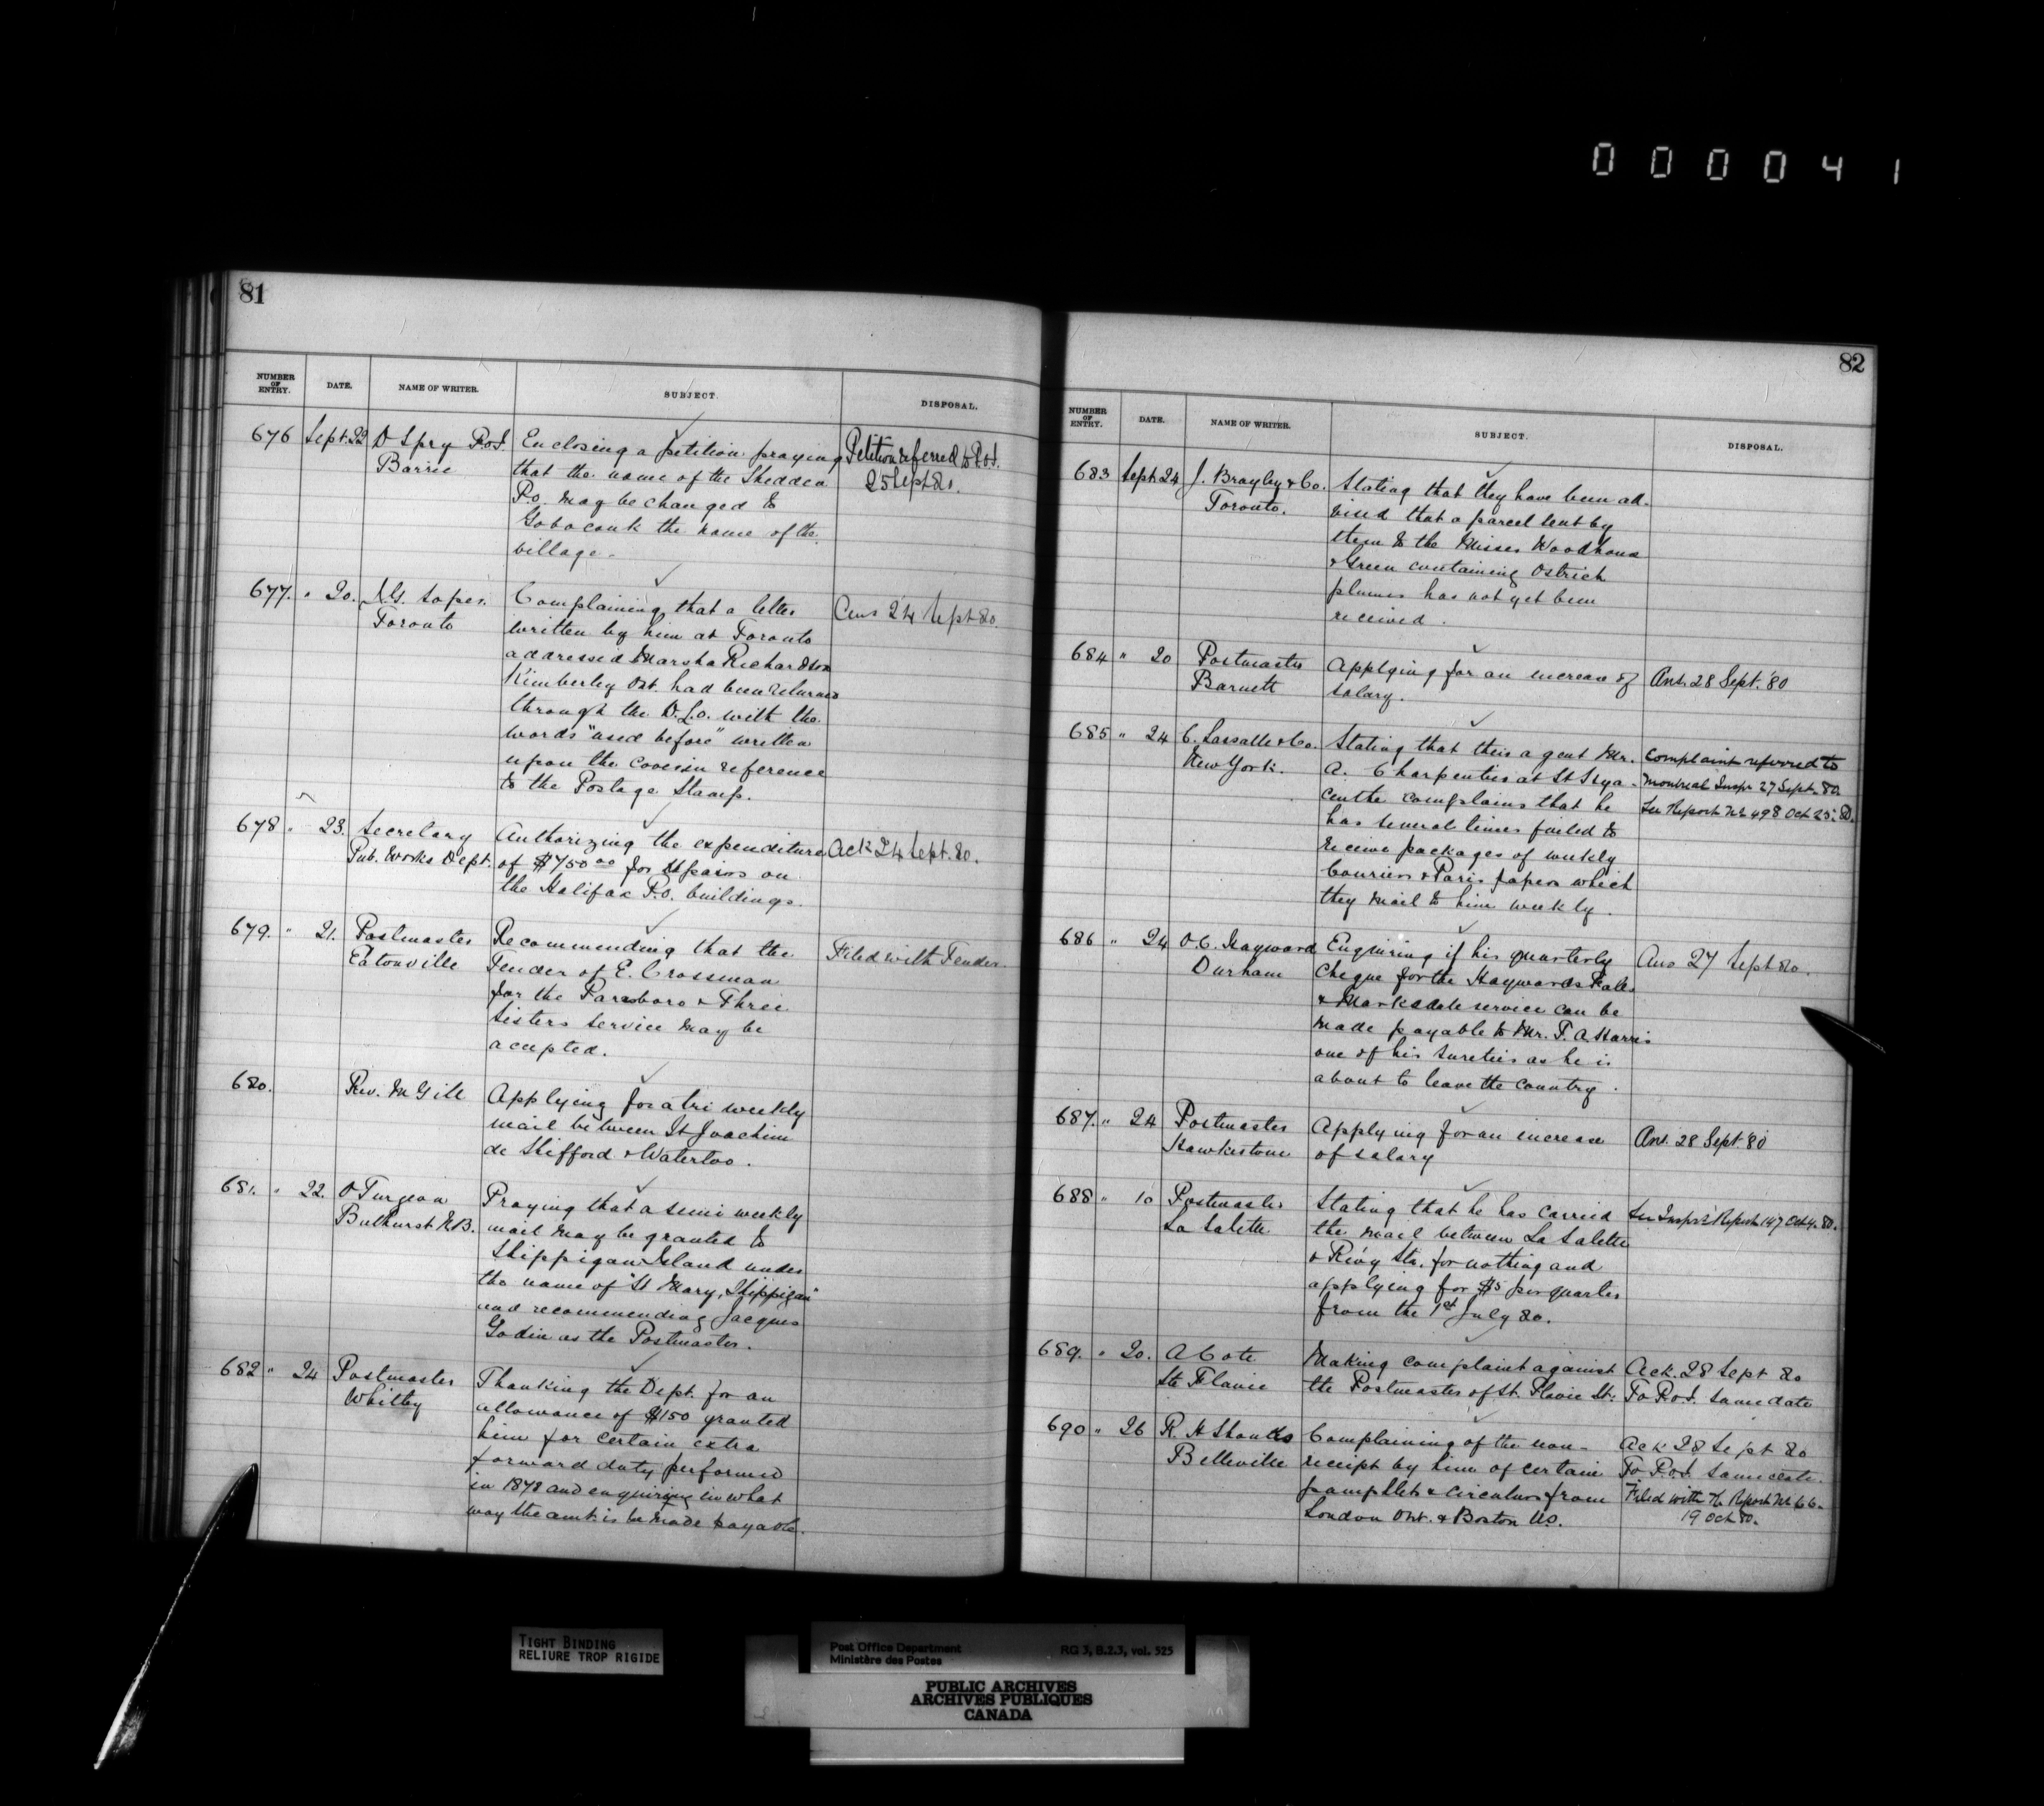 000041
81
NUMBER OF ENTRY. DATE. NAME OF WRITER. SUBJECT. DISPOSAL.
676 Sept. 22 D Spry P.O.I. Enclosing a petition praying Petition referred to P.O.I.
Barrie that the name of the Shedden 25 Sept 80.
P.O. may be changed to
Gobocouk the name of the
village.
677. " 20. Complaining that a letter Ans 24 Sept 80.
Toronto written by him at Toronto
addressed Marsha Richardson
Kimberley Ont. had been returned
through the D.L.O. with the
words "used before" written
upon the cover in reference
to the Postage Stamp.
678 " 23. Secretary Authorizing the expenditure Ack 24 Sept. 80.
Pub. Works Dept. of $750 00 for repairs on
the Halifax P.O. buildings.
679. " 21. Postmaster Recommending that the Filed with Tender.
Eatonville Tender of E. Crossman
for the Parrsboro & Three
Sisters service may be
accepted.
680. Rev. McGill Applying for a tri weekly
mail between St Joachim
de Shifford & Waterloo.
681. " 22. O Turgeon Praying that a semi weekly
Bathurst N.B. mail may be granted to
Shippigan Island under
the name of "St Mary, Shippigan"
and recommending Jacques
Godin as the Postmaster.
682 " 24 Postmaster Thanking the Dept. for an
Whitby allowance of $150 granted
him for certain extra
forward duty performed
in 1878 and enquiring in what
way the amt. is to be made payable.
82
NUMBER OF ENTRY. DATE. NAME OF WRITER. SUBJECT. DISPOSAL.
683 Sept 24 J. Brayley & Co. Stating that they have been ad-
Toronto. vised that a parcel sent by
them to the Misses Woodhouse
& Green containing Ostrich
plumes has not yet been
received.
684 " 20 Postmaster Applying for an increase of Ans. 28 Sept. '80
Barnett salary.
685 " 24 C. Lassalle & Co. Stating that their agent Mr. Complaint referred to
New York. A. Charpentier at St Hya- Montreal Inspr 27 Sept. 80.
cinthe complains that he See Report No 498 Oct 25. 80.
has several times failed to
receive packages of weekly
Couriers & Paris papers which
they mail to him weekly.
686 " 24 O.C. Hayward Enquiring if his quarterly Ans 27 Sept 80.
Durham Cheque for the Haywards Falls
& Markdale service can be
made payable to Mr. T. A. Harris
one of his sureties as he is
about to leave the country.
687. " 24 Postmaster Applying for an increase Ans. 28 Sept. '80
Hawkestone of salary
688 " 10 Postmaster Stating that he has carried See Inspr's Report 147 Oct 4. 80.
La Salette the mail between La Salette
& Rlwy Sta. for nothing and
applying for $5 per quarter
from the 1st July 80.
689. " 20. A Cote Making complaint against Ack. 28 Sept 80
Ste Flavie the Postmaster of St. Flavie St. To P.O.I. same date
690 " 26 R. H Shanks Complaining of the non- Ack 28 Sept 80
Belleville receipt by him of certain To P.O.I. same date.
pamphlets & circulars from Filed with K. Report No 66.
London Ont. & Boston US. 19 Oct 80.
TIGHT BINDING
RELIURE TROP RIGIDE
Post Office Department RG 3, B.2.3, vol. 525
Ministère des Postes
PUBLIC ARCHIVES
ARCHIVES PUBLIQUES
CANADA